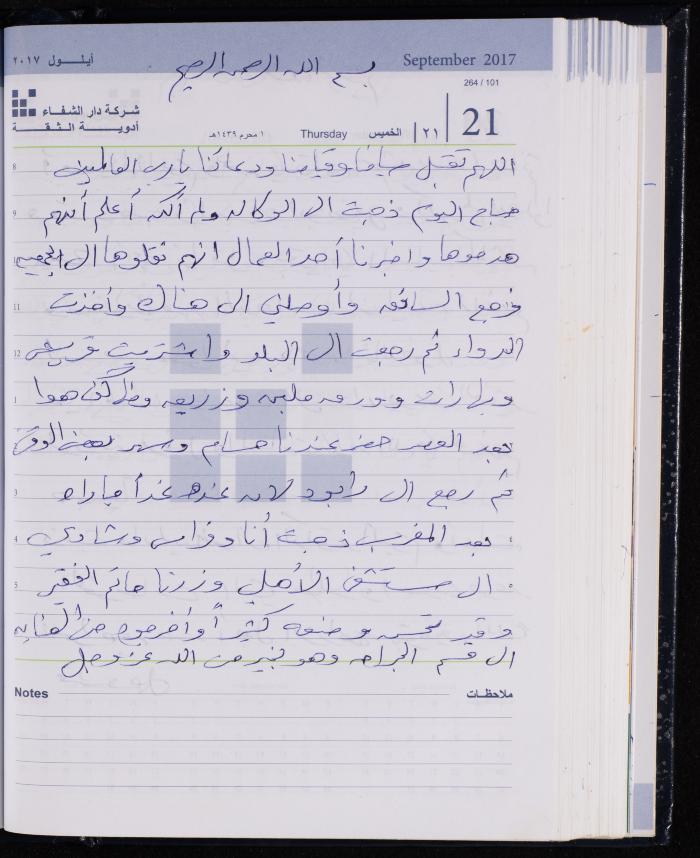 أيلول ٢٠١٧
September 2017
بسم الله الرحمن الرحيم
264 / 101
شركة دار الشفاء
أدوية الشفة
21
٢١
الخميس
Thursday
١ محرم ١٤٣٩هـ
8 اللهم تقبل صيامنا وقيامنا ودعائنا يا رب العالمين
9 صباح اليوم ذهبت الى الوكاله ولم أكن أعلم أنهم
هدموها واخبرنا أحد العمال انهم نقلوها الى الجمعيه
11 فرجع السائق وأوصلني الى هناك وأخذت
12 الدواء ثم رجعت الى البلد واشتريت
1 وبهارات وورقه ملبن وزريعه
بعد العصر حضر عندنا حسام وسهر بعض الوقت
3 ثم رجع الى رابود لان عنده غداً مباراه
4 بعد المغرب ذهبت أنا وفراس وشادي
5 الى مستشفى الأهلي وزرنا حاتم الفقير
وقد تحسن وضعه كثيراً وأخرجوه من العنايه
الى قسم الجراحه وهو بخير من الله عز وجل
Notes
ملاحظات